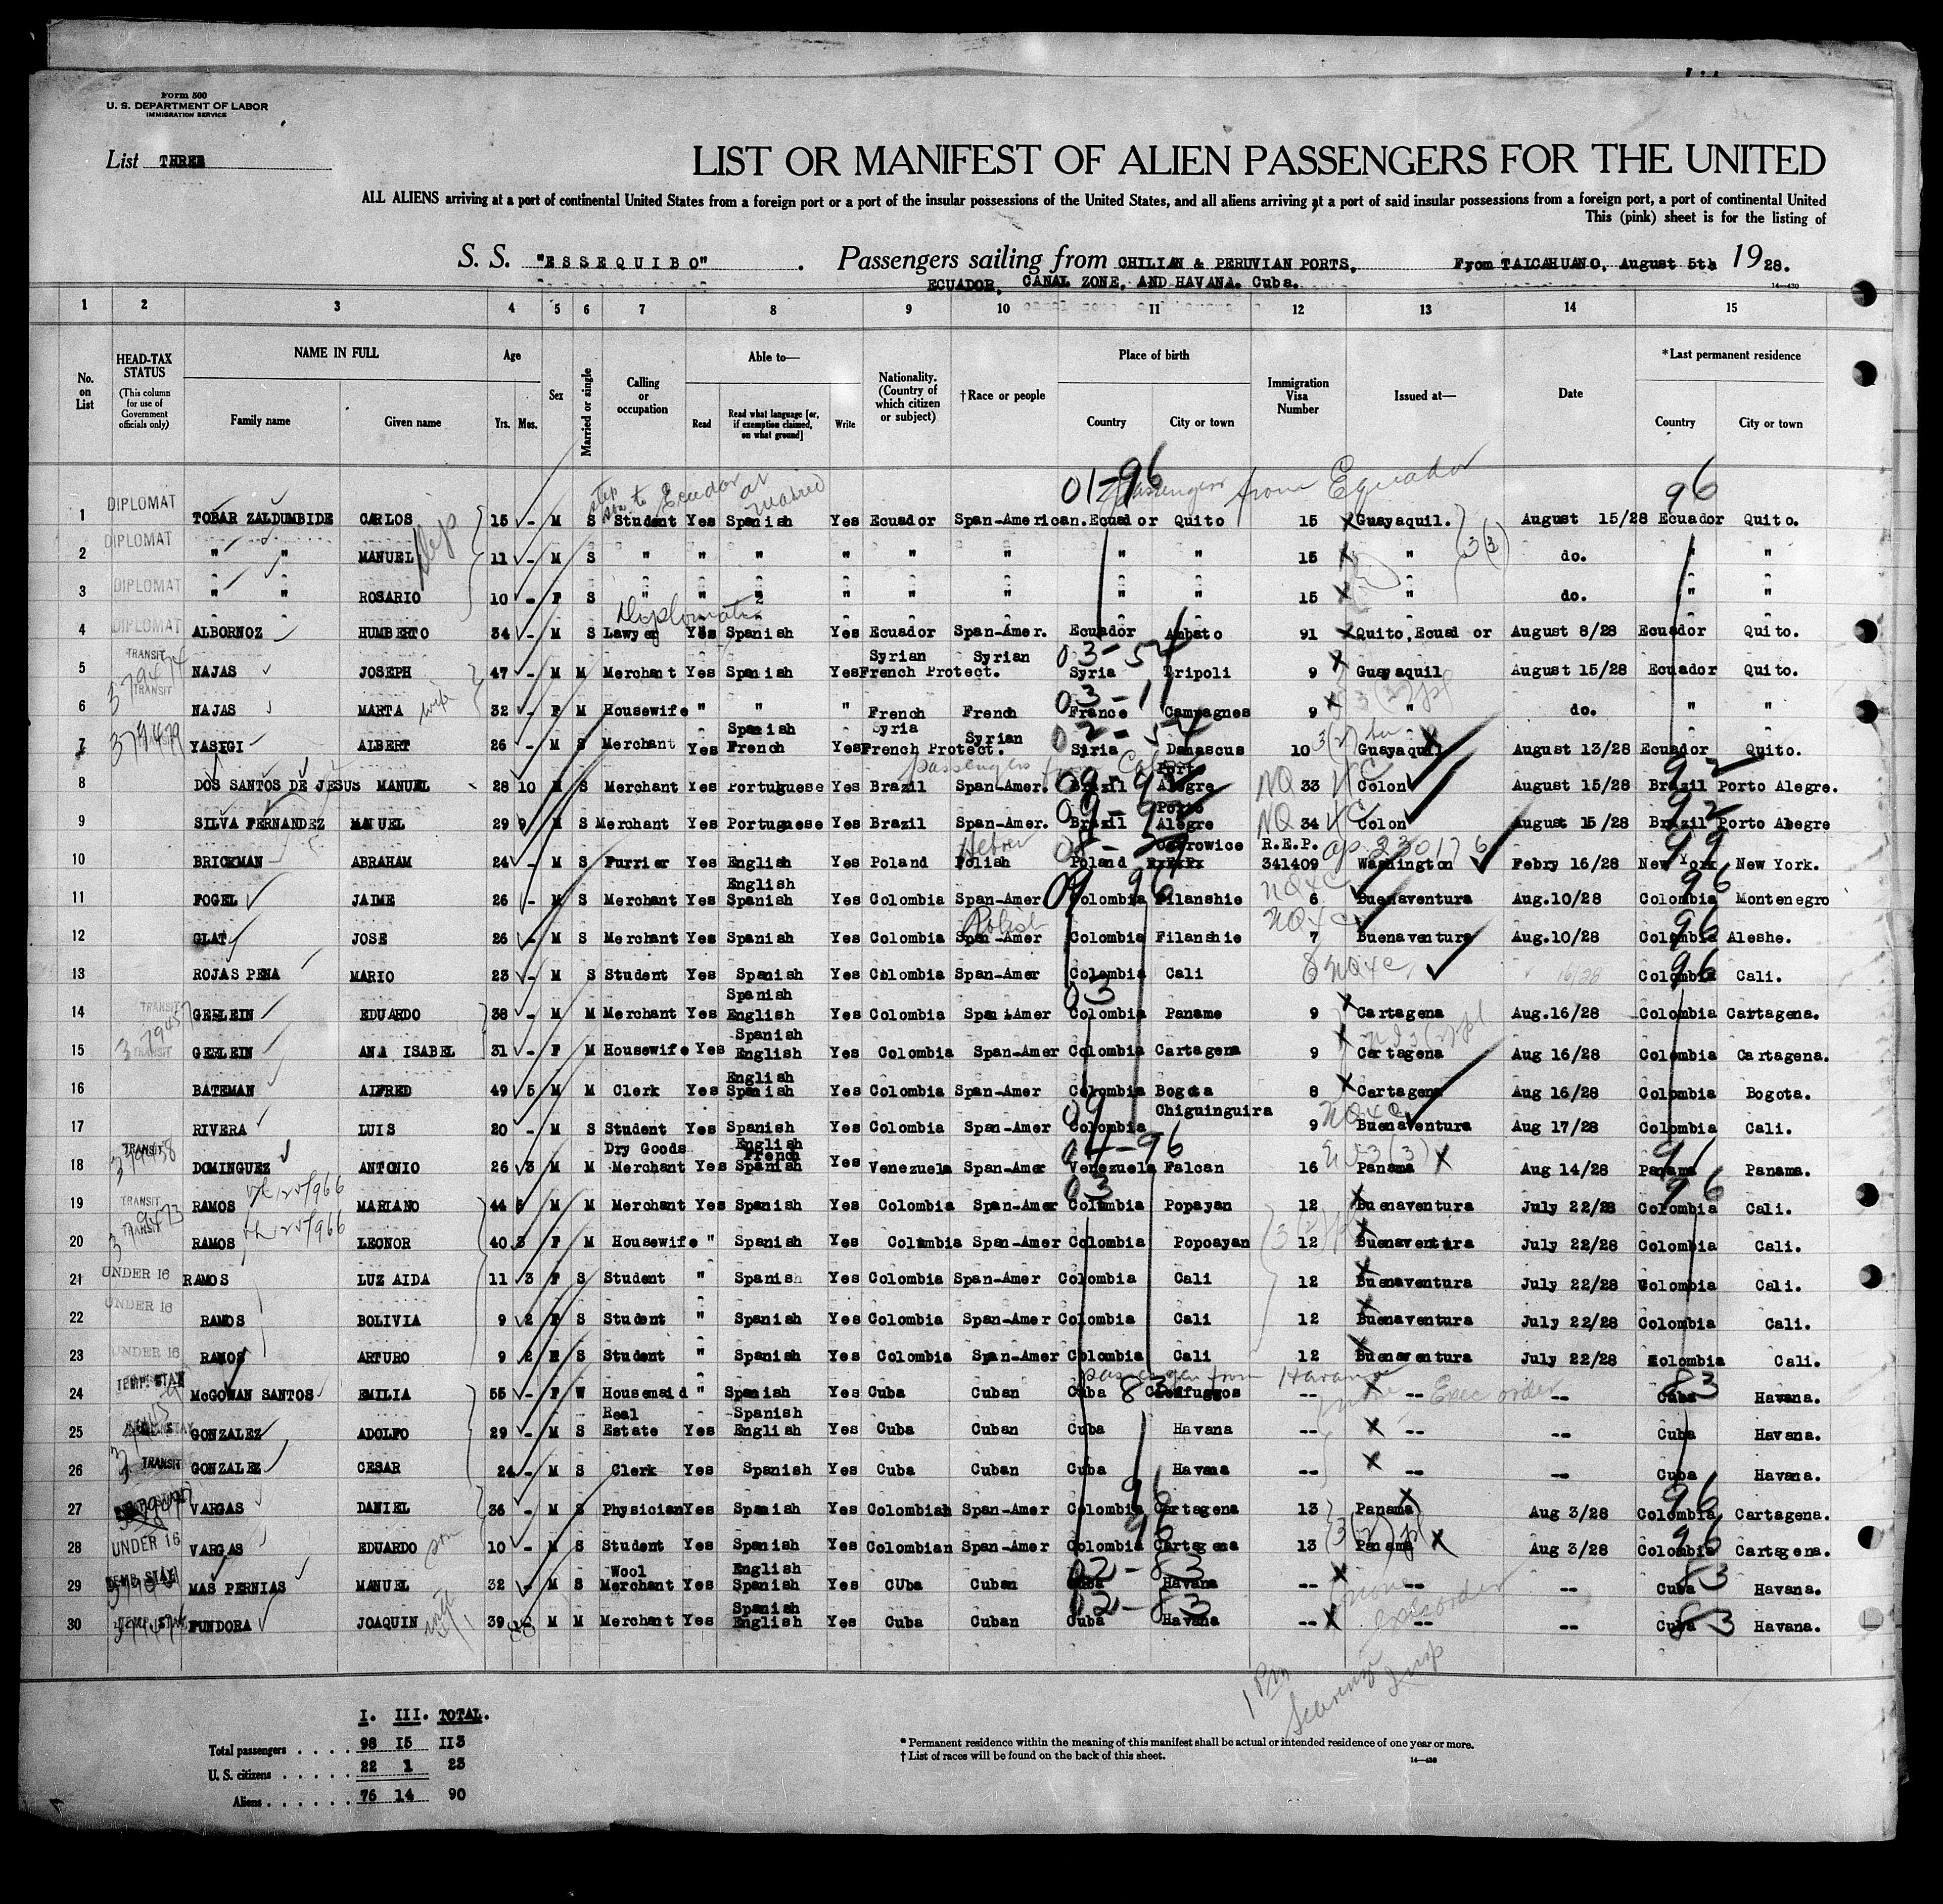 Form 500
U. S. DEPARTMENT OF LABOR
IMMIGRATION SERVICE
List THREE
LIST OR MANIFEST OF ALIEN PASSENGERS FOR THE UNITED
ALL ALIENS arriving at a port of continental United States from a foreign port or a port of the insular possessions of the United States, and all aliens arriving at a port of said insular possessions from a foreign port, a port of continental United
This (pink) sheet is for the listing of
S. S. "ESSEQUIBO". Passengers sailing from CHILIAN & PERUVIAN PORTS, From TALCAHUANO, August 5th 1928.
ECUADOR, CANAL ZONE, AND HAVANA. Cuba.
14-430
1 2 3 4 5 6 7 8 9 10 11 12 13 14 15
No. on List HEAD-TAX STATUS (This column for use of Government officials only) NAME IN FULL Family name Given name Age Yrs. Mos. Sex Married or single Calling or occupation Able to— Read Read what language [or, if exemption claimed, on what ground] Write Nationality. (Country of which citizen or subject) †Race or people Place of birth Country City or town Immigration Visa Number Issued at— Date *Last permanent residence Country City or town
step son to Ecuador at Madrid 01-96 Passengers from Equador 96
1 DIPLOMAT TOBAR ZALDUMBIDE CARLOS 15 - M S Student Yes Spanish Yes Ecuador Span-American. Ecuador Quito 15 Guayaquil. August 15/28 Ecuador Quito.
2 DIPLOMAT " " MANUEL 11 - M S " " " " " " " " 15 " 3(3) do. " "
3 DIPLOMAT " " ROSARIO 10 - F S " " " " " " " " 15 " do. " "
Diplomatic
4 DIPLOMAT ALBORNOZ HUMBERTO 34 - M S Lawyer Yes Spanish Yes Ecuador Span-Amer. Ecuador Ambato 91 Quito, Ecuador August 8/28 Ecuador Quito.
Syrian Syrian 03-54
5 TRANSIT NAJAS JOSEPH 47 - M M Merchant Yes Spanish Yes French Protect. Syria Tripoli 9 Guayaquil August 15/28 Ecuador Quito.
03-11
6 TRANSIT NAJAS MARTA wife 32 - F M Housewife " " " French French France Campagnes 9 " do. " "
Spanish Syria Syrian
7 YASIGI ALBERT 26 - M S Merchant Yes French Yes French Protect. Siria Damascus 10 Guayaquil August 13/28 Ecuador Quito.
passengers from Port 92
8 DOS SANTOS DE JESUS MANUEL 28 10 M S Merchant Yes Portuguese Yes Brazil Span-Amer. Brazil Alegre NQ 33 Colon August 15/28 Brazil Porto Alegre.
Porto 92
9 SILVA FERNANDEZ MANUEL 29 9 M S Merchant Yes Portuguese Yes Brazil Span-Amer. Brazil Alegre NQ 34 Colon August 15/28 Brazil Porto Alegre
Hebrew R.E.P. 99
10 BRICKMAN ABRAHAM 24 - M S Furrier Yes English Yes Poland Polish Poland 341409 Washington Febry 16/28 New York New York.
English 09 96 NQ4C 96
11 FOGEL JAIME 26 - M S Merchant Yes Spanish Yes Colombia Span-Amer Colombia Filanshie 6 Buenaventura Aug.10/28 Colombia Montenegro
Polish NQ4C 96
12 GLAT JOSE 26 - M S Merchant Yes Spanish Yes Colombia Span-Amer Colombia Filanshie 7 Buenaventura Aug.10/28 Colombia Aleshe.
13 ROJAS PENA MARIO 23 - M S Student Yes Spanish Yes Colombia Span-Amer Colombia Cali 8 NQ4C 16/28 Colombia Cali. 96
Spanish 03
14 TRANSIT GERLEIN EDUARDO 38 - M M Merchant Yes English Yes Colombia Span-Amer Colombia Paname 9 Cartagena Aug.16/28 Colombia Cartagena.
Spanish
15 TRANSIT GERLEIN ANA ISABEL 31 - F M Housewife Yes English Yes Colombia Span-Amer Colombia Cartagena 9 Cartagena Aug 16/28 Colombia Cartagena.
English
16 BATEMAN ALFRED 49 5 M M Clerk Yes Spanish Yes Colombia Span-Amer Colombia Bogota 8 Cartagena Aug 16/28 Colombia Bogota.
09 Chiguinguira NQ4C
17 RIVERA LUIS 20 - M S Student Yes Spanish Yes Colombia Span-Amer Colombia 9 Buenaventura Aug 17/28 Colombia Cali.
Dry Goods English French 04-96
18 TRANSIT DOMINGUEZ ANTONIO 26 3 M M Merchant Yes Spanish Yes Venezuela Span-Amer Venezuela Falcan 16 Panama Aug 14/28 Panama Panama.
03 96
19 TRANSIT RAMOS MARIANO 44 5 M M Merchant Yes Spanish Yes Colombia Span-Amer Colombia Popayan 12 Buenaventura July 22/28 Colombia Cali.
20 TRANSIT RAMOS LEONOR 40 3 F M Housewife " Spanish Yes Colombia Span-Amer Colombia Popoayan 12 Buenaventura July 22/28 Colombia Cali.
21 UNDER 16 RAMOS LUZ AIDA 11 3 F S Student " Spanish Yes Colombia Span-Amer Colombia Cali 12 Buenaventura July 22/28 Colombia Cali.
22 UNDER 16 RAMOS BOLIVIA 9 2 F S Student " Spanish Yes Colombia Span-Amer Colombia Cali 12 Buenaventura July 22/28 Colombia Cali.
23 UNDER 16 RAMOS ARTURO 9 2 S Student " Spanish Yes Colombia Span-Amer Colombia Cali 12 Buenaventura July 22/28 Kolombia Cali.
passenger from Havana
24 TEMP. STAY McGOWAN SANTOS EMILIA 55 - F W Housemaid " Spanish Yes Cuba Cuban Cuba 83 Cienfuegos -- -- Exec order -- Cuba 83 Havana.
Real Spanish
25 GONZALEZ ADOLFO 29 - M S Estate Yes English Yes Cuba Cuban Cuba Havana -- -- -- Cuba Havana.
26 TRANSIT GONZALEZ CESAR 24 - M S Clerk Yes Spanish Yes Cuba Cuban Cuba Havana -- -- -- Cuba Havana.
96 96
27 VARGAS DANIEL 36 - M S Physician Yes Spanish Yes Colombian Span-Amer Colombia Cartagena 13 Panama Aug 3/28 Colombia Cartagena.
96 96
28 UNDER 16 VARGAS EDUARDO son 10 - M S Student Yes Spanish Yes Colombian Span-Amer Colombia Cartagena 13 Panama Aug 3/28 Colombia Cartagena.
Wool English 02-83
29 TEMP. STAY MAS PERNIAS MANUEL 32 - M S Merchant Yes Spanish Yes CUba Cuban Cuba Havana -- -- none -- Cuba 83 Havana.
Spanish 02-83 exec order
30 TEMP. STAY FUNDORA JOAQUIN 39 M M Merchant Yes English Yes Cuba Cuban Cuba Havana -- -- -- Cuba 83 Havana.
1 PM
Insp
I. III. TOTAL.
Total passengers . . . . 98 15 113
U. S. citizens . . . . . 22 1 23
Aliens . . . . . . 76 14 90
* Permanent residence within the meaning of this manifest shall be actual or intended residence of one year or more.
† List of races will be found on the back of this sheet.
14-430